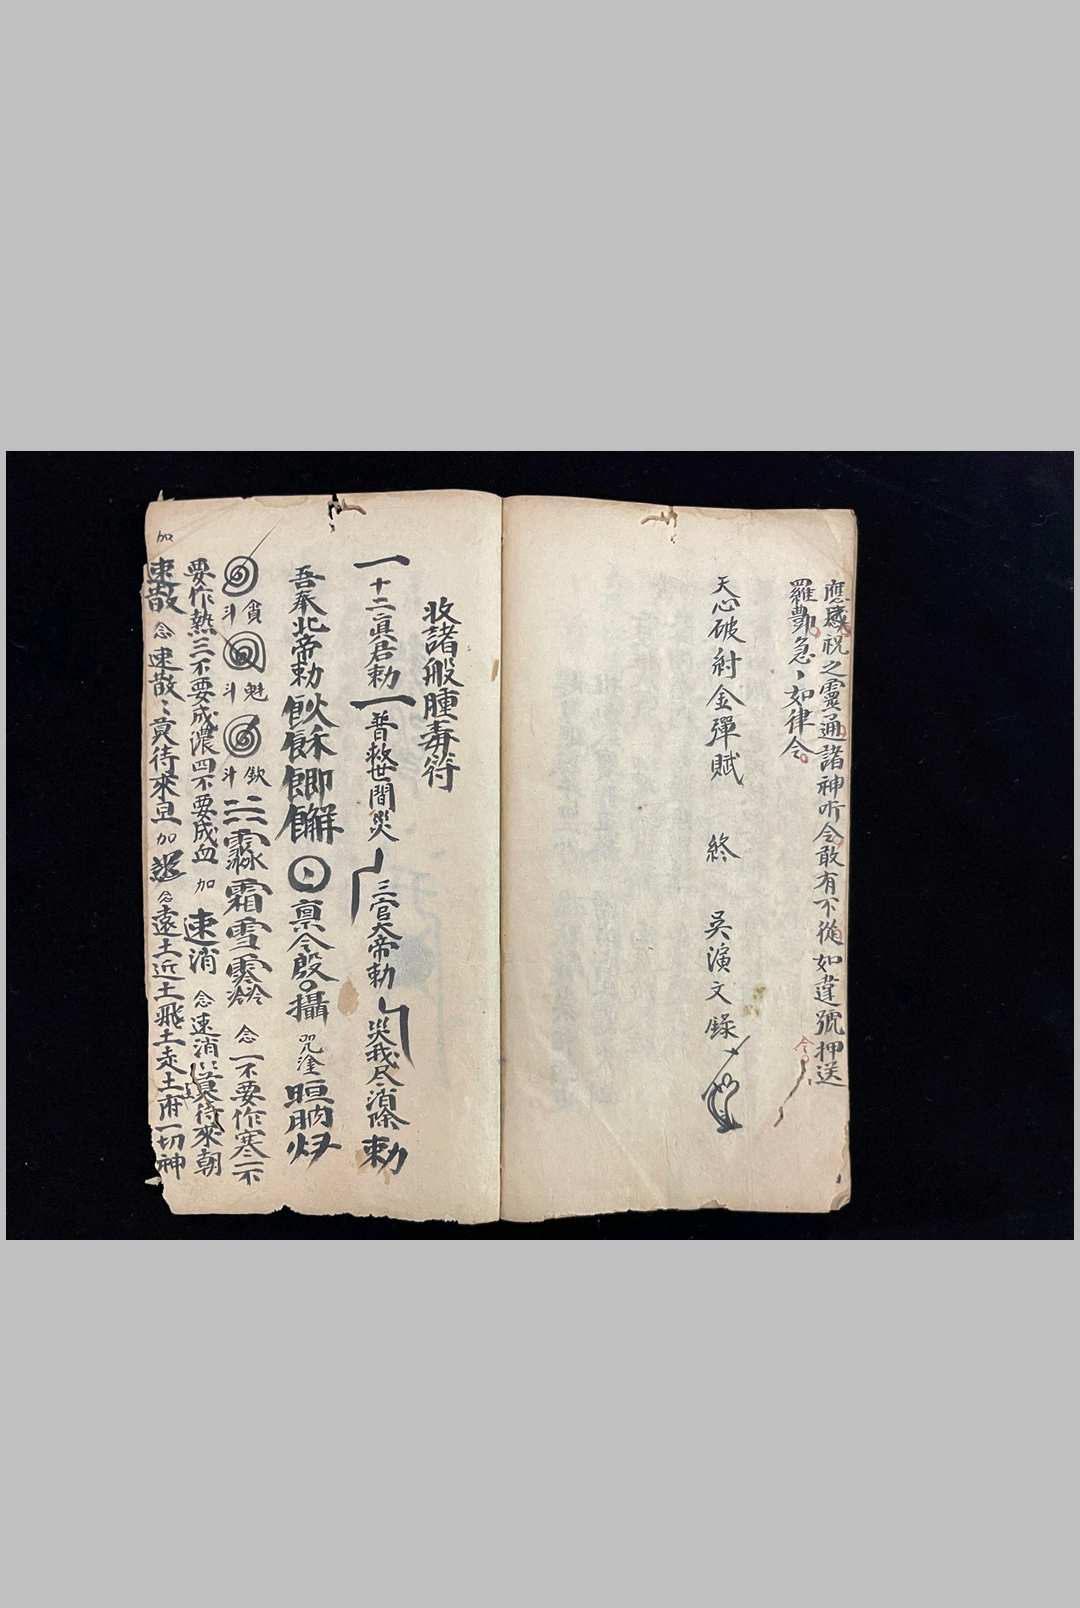 應感祝之靈通諸神咋令敢有不從如違號押送
羅酆急〻如律令
令
天心破射金彈賦 終 吳演文錄
收諸般腫毒符
一十二真君勅一普救世間災 三官大帝勅 災我尽消除勅
吾奉北帝勅 稟令 攝 咒
貪斗 魁斗 欽斗 三 霜雪 念一不要作寒二不
要作熱三不要成濃四不要成血 加 速消 念速消〻莫待來朝
加 速散 念速散〻莫待來旦 加 念遠土近土飛土走土府一切神